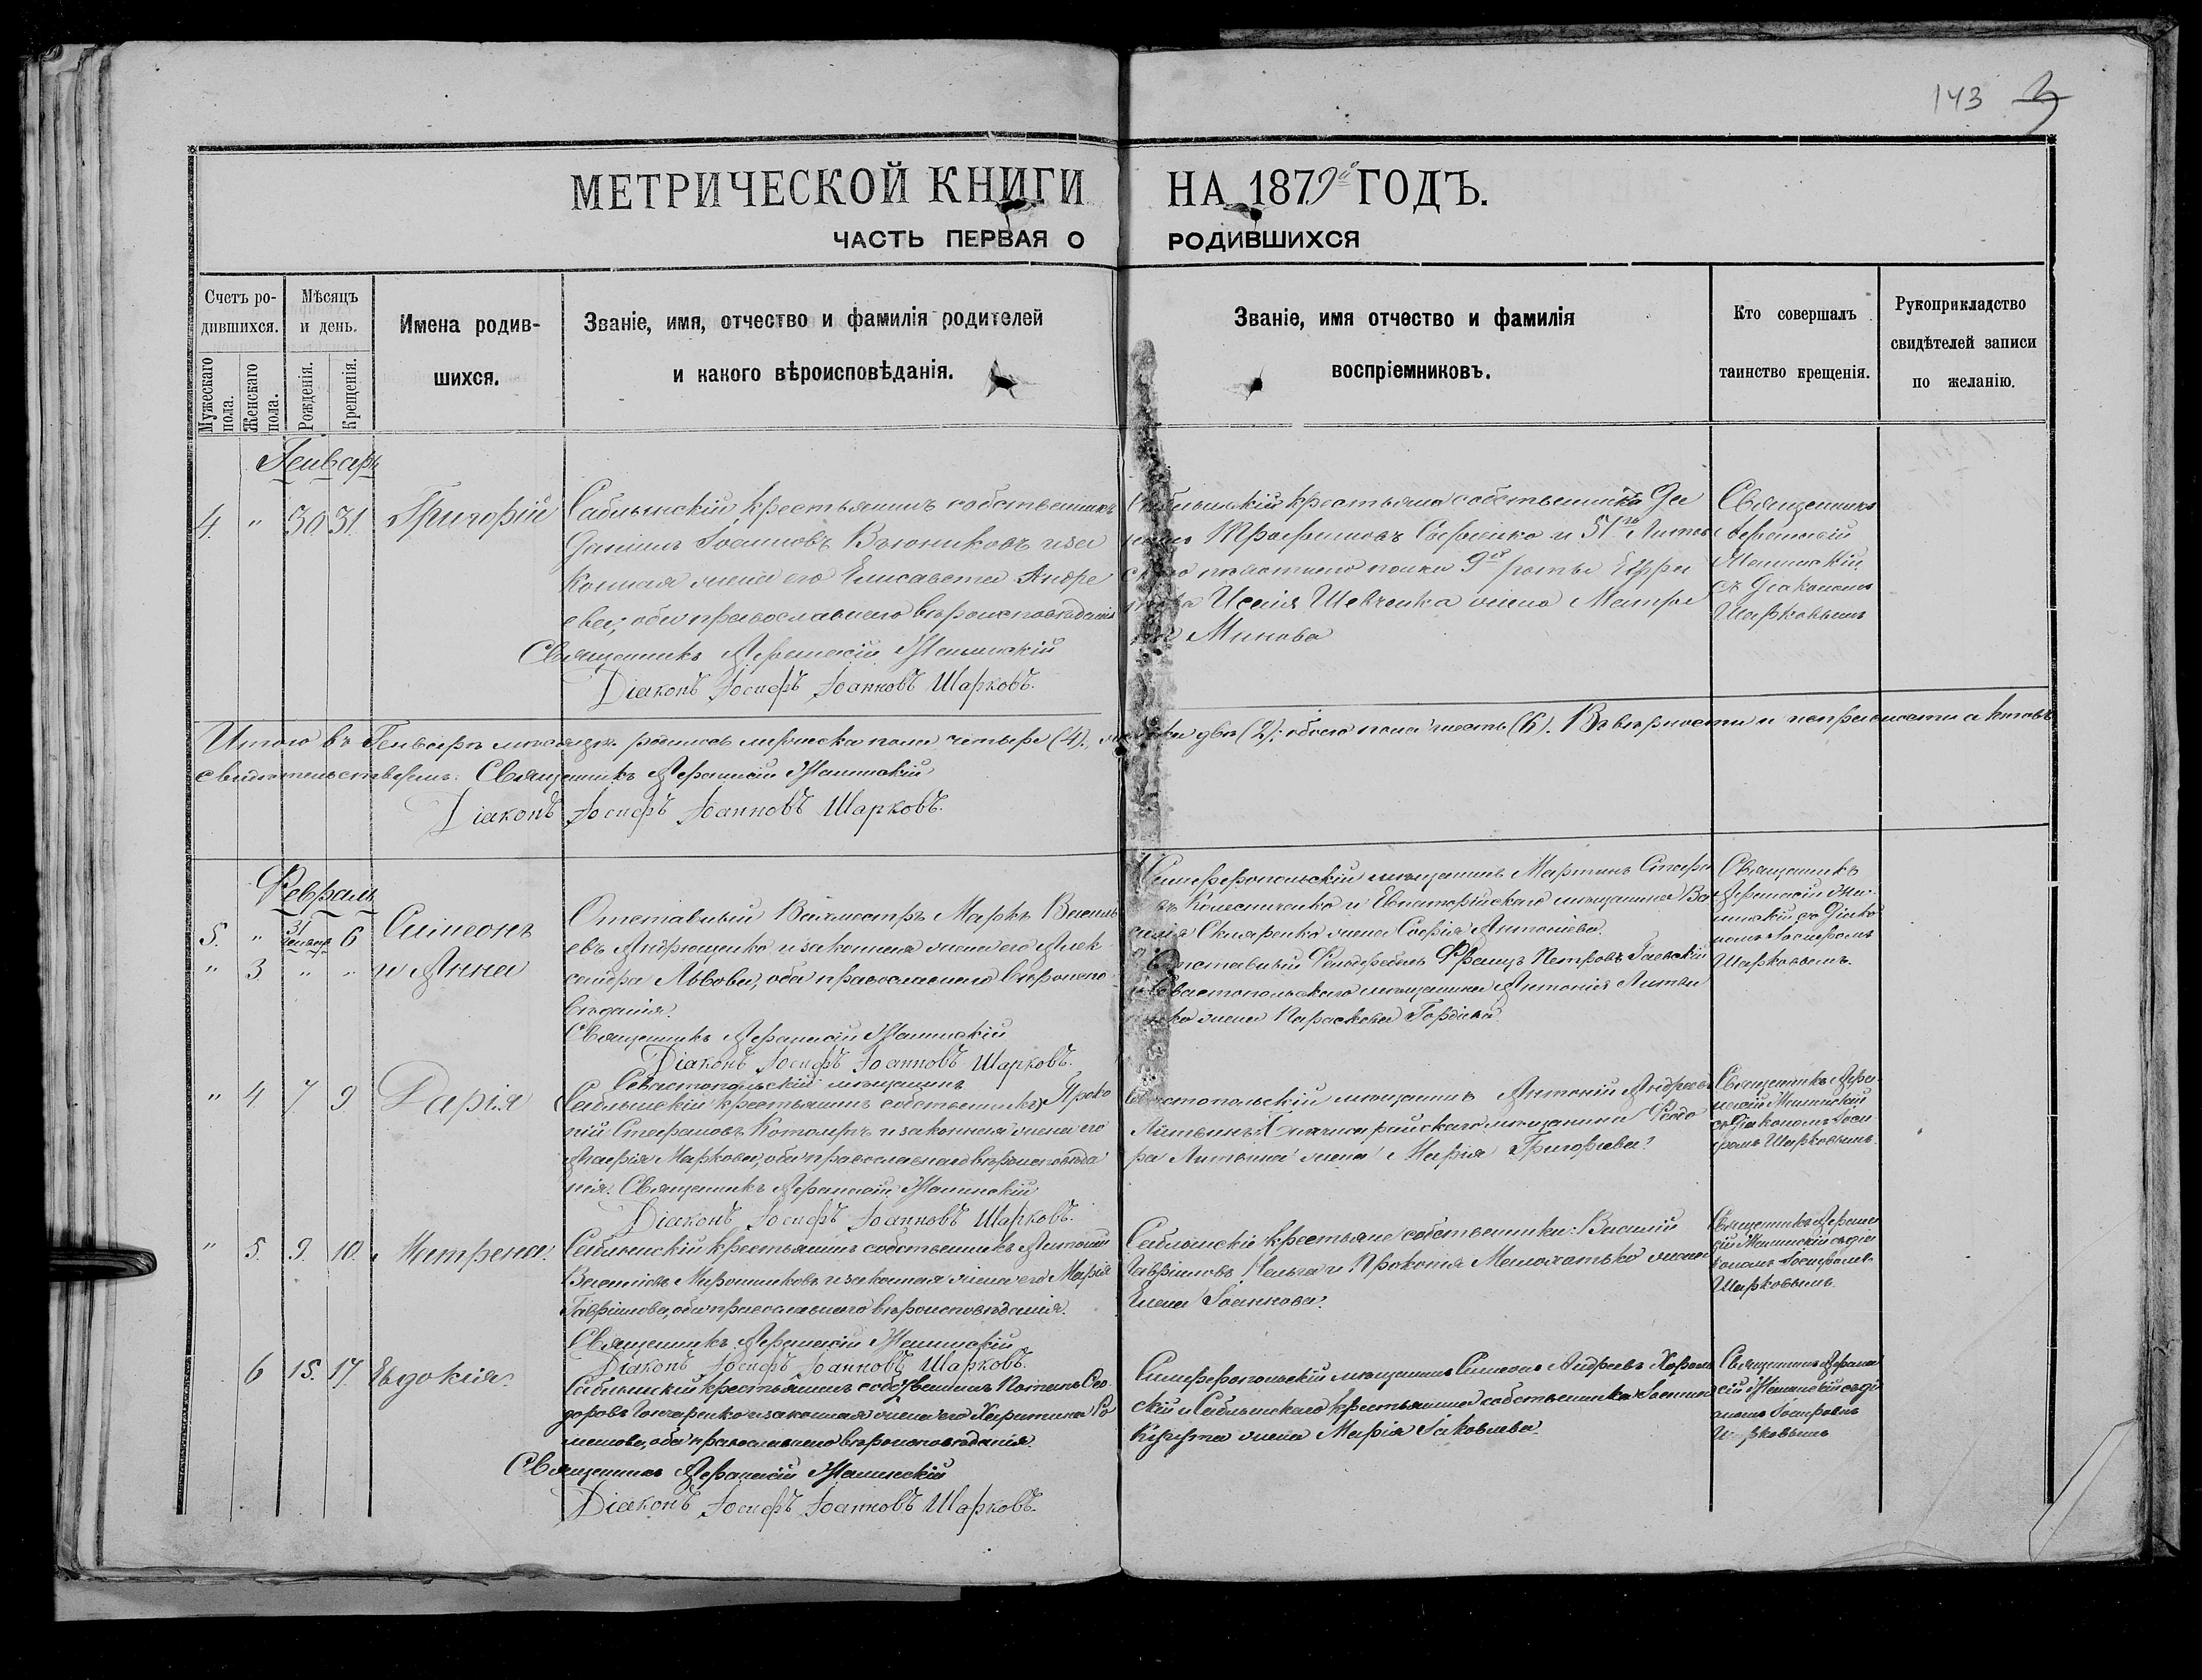 143 3
МЕТРИЧЕСКОЙ КНИГИ НА 1879й ГОДЪ.
ЧАСТЬ ПЕРВАЯ О РОДИВШИХСЯ
Счетъ ро-
дившихся.
Мужескаго пола.
Женскаго пола.
Мѣсяцъ
и день.
Рожденія.
Крещенія.
Имена родив-
шихся.
Званіе, имя, отчество и фамилія родителей
и какого вѣроисповѣданія.
Званіе, имя отчество и фамилія
воспріемниковъ.
Кто совершалъ
таинство крещенія.
Рукоприкладство
свидѣтелей записи
по желанію.
Генварь
4. " 30 31. Григорій
Саблынскій крестьянинъ собственникъ
Даніилъ Іоанновъ Вьюниковъ иза
конная жена его Елисавета Андре
ева; оба православнаго вѣроисповѣданія
Священникъ Афанасій
Діаконъ Іосифъ Іоанновъ Шарковъ.
крестьянинъ собственникъ
Трофимовъ и 51го Литов
скаго полка 9ой роты
Исаія Шевченка жена
Минова
Священникъ
Афанасій
съ Діакономъ
Шарковымъ
Итого въ Генварѣ мѣсяцѣ родилось мужеска пола четыре (4), женска два (2); обоего пола шесть (6). Въ вѣрности и исправности актовъ
свидѣтельствуемъ: Священникъ Афанасій
Діаконъ Іосифъ Іоанновъ Шарковъ.
Февраль
5. " 31 Генвар 6 Симеонъ
" 3. " " и Анна
Отставный Вахмистръ Маркъ Василь
евъ Андрющенко и законная жена его Алек
сандра Львова, оба православнаго вѣроиспо
вѣданія.
Священникъ Афанасій
Діаконъ Іосифъ Іоанновъ Шарковъ.
Симферопольскій мѣщанинъ Мартинъ Стефа
овъ Колесниченко и Евпаторійскаго мѣщанина Ва
силія Скляренка жена Софія Антоніева.
Отставный Фельдфебель Францъ Петровъ Гаевскій
и Севастопольскаго мѣщанина Антонія Литви
жена Параскева Гордіева
Священникъ
Афанасій
съ Діако
номъ Іосифомъ
Шарковымъ.
" 4. 7. 9 Дарія
Севастопольскій мѣщанинъ
(Саблынскій крестьянинъ собственникъ) Проко
пій Стефановъ и законная жена его
Маркова, оба православнаго вѣроисповѣда
нія. Священникъ Афанасій
Діаконъ Іосифъ Іоанновъ Шарковъ.
Севастопольскій мѣщанинъ Антоній Андреевъ
Литвинъ мѣщанина Ѳеодо
ра Литвина жена Марія Григорьева.
Священникъ Афа
насій
съ Діакономъ Іоси
фомъ Шарковымъ.
" 5. 9. 10. Матрена.
Саблынскій крестьянинъ собственникъ Антоній
Мирошниковъ и законная жена его Марія
Гавріилова, оба православнаго вѣроисповѣданія.
Священникъ Афанасій
Діаконъ Іосифъ Іоанновъ Шарковъ.
Саблынскіе крестьяне собственники: Василій
Гавріиловъ и Прокопія жена
Елена Іоаннова.
Священникъ Афана
сій съ Діа
кономъ Іосифомъ
Шарковымъ.
6 15. 17. Евдокія.
Саблынскій крестьянинъ собственникъ Потапъ Ѳео
доровъ Гончаренко и законная жена его Харитина Ро
манова, оба православнаго вѣроисповѣданія.
Священникъ Афанасій
Діаконъ Іосифъ Іоанновъ Шарковъ.
Симферопольскій мѣщанинъ Симеонъ Андреевъ
скій и Саблынскаго крестьянина собственника Іоанна
жена Марія Іаковлева.
Священникъ Афана
сій съ Ді
акономъ Іосифомъ
Шарковымъ